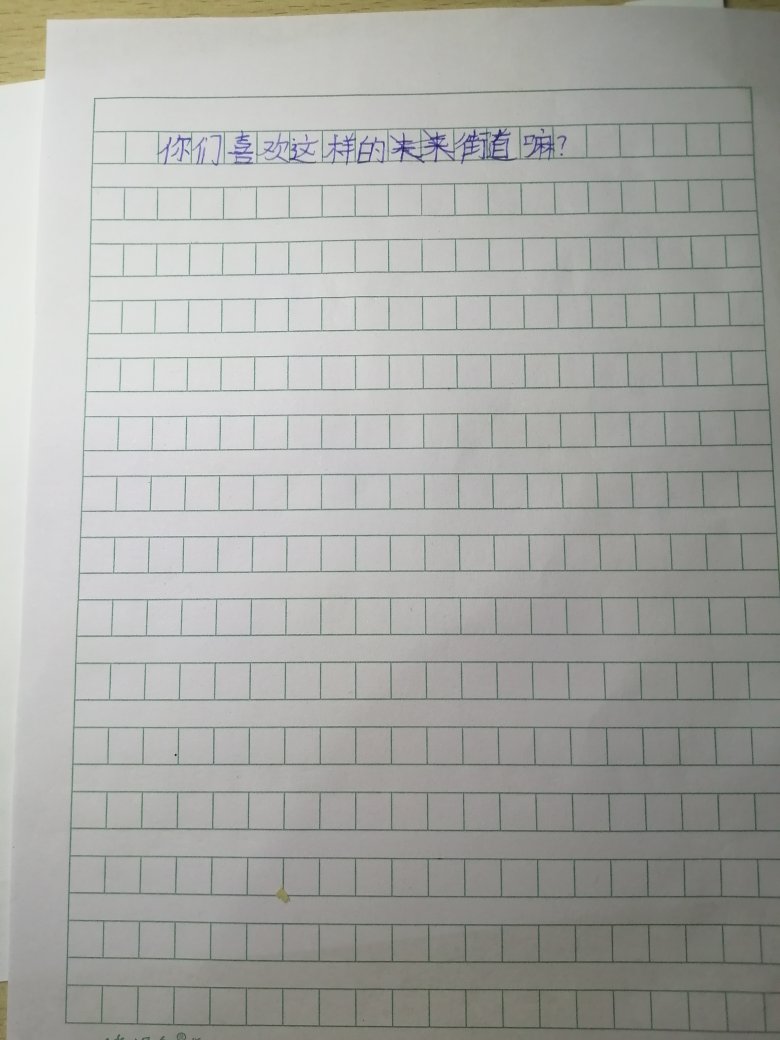 你们喜欢这样的未来街道嘛?